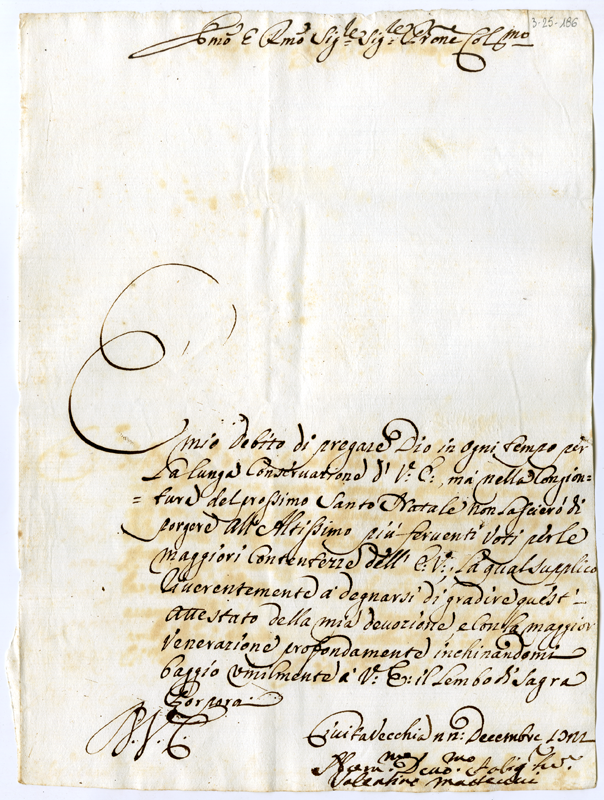 3-25-186
Emo E Rmo Sigre Sigre Prone Colmo
E mio debito di pregare Dio in ogni tempo per
La lunga Conservatione di V. E., ma nella Congion=
=tura del prossimo Santo Natale non lascierò di
porgere all'Altissimo più ferventi voti per le
maggiori Contentezze dell' E. V., La qual supplico
riverentemente a degnarsi di gradire quest'
attestato della mia devozione, e con la maggior
Venerazione profondamente inchinandomi
baggio umilmente a V. E. il Lembo di Sagra
Porpora
Civita Vecchia Decembre
Valentino Matteucci